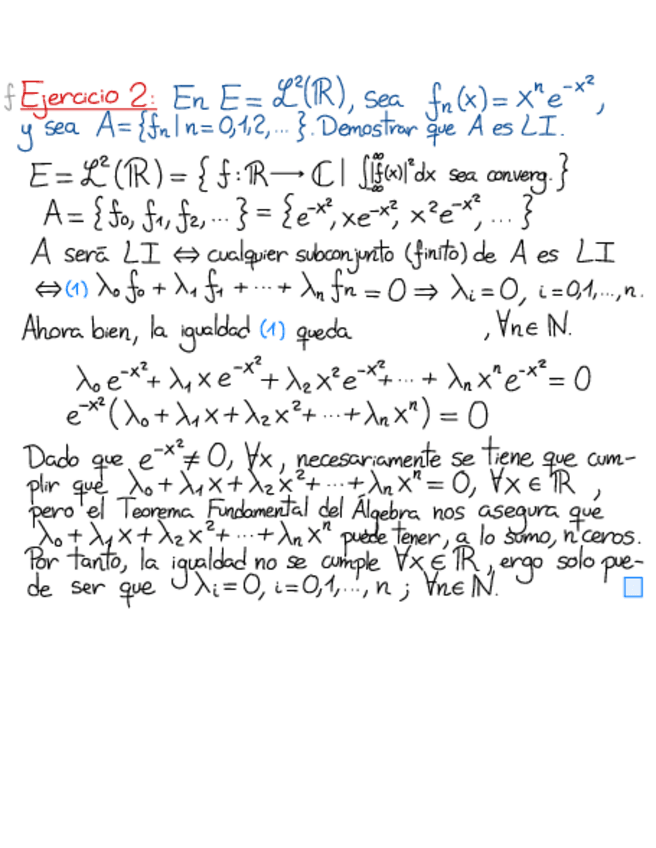 f Ejercicio 2: En E = ℒ²(ℝ), sea fₙ(x) = xⁿe^{-x²},
y sea A = {fₙ | n = 0,1,2,...}. Demostrar que A es LI.
E = ℒ²(ℝ) = { f: ℝ ⟶ ℂ | ∫_{∞}^{∞}|f(x)|²dx sea converg. }
A = {f₀, f₁, f₂, ...} = {e^{-x²}, xe^{-x²}, x²e^{-x²}, ...}
A será LI ⇔ cualquier subconjunto (finito) de A es LI
⇔ (1) λ₀f₀ + λ₁f₁ + ··· + λₙfₙ = 0 ⇒ λᵢ = 0, i = 0,1,...,n.
Ahora bien, la igualdad (1) queda , ∀n∈ℕ.
λ₀e^{-x²} + λ₁xe^{-x²} + λ₂x²e^{-x²} + ··· + λₙxⁿe^{-x²} = 0
e^{-x²}(λ₀ + λ₁x + λ₂x² + ··· + λₙxⁿ) = 0
Dado que e^{-x²} ≠ 0, ∀x, necesariamente se tiene que cum-
plir que λ₀ + λ₁x + λ₂x² + ··· + λₙxⁿ = 0, ∀x∈ℝ ,
pero el Teorema Fundamental del Álgebra nos asegura que
λ₀ + λ₁x + λ₂x² + ··· + λₙxⁿ puede tener, a lo sumo, n ceros.
Por tanto, la igualdad no se cumple ∀x∈ℝ, ergo solo pue-
de ser que λᵢ = 0, i = 0,1,..., n ; ∀n∈ℕ.